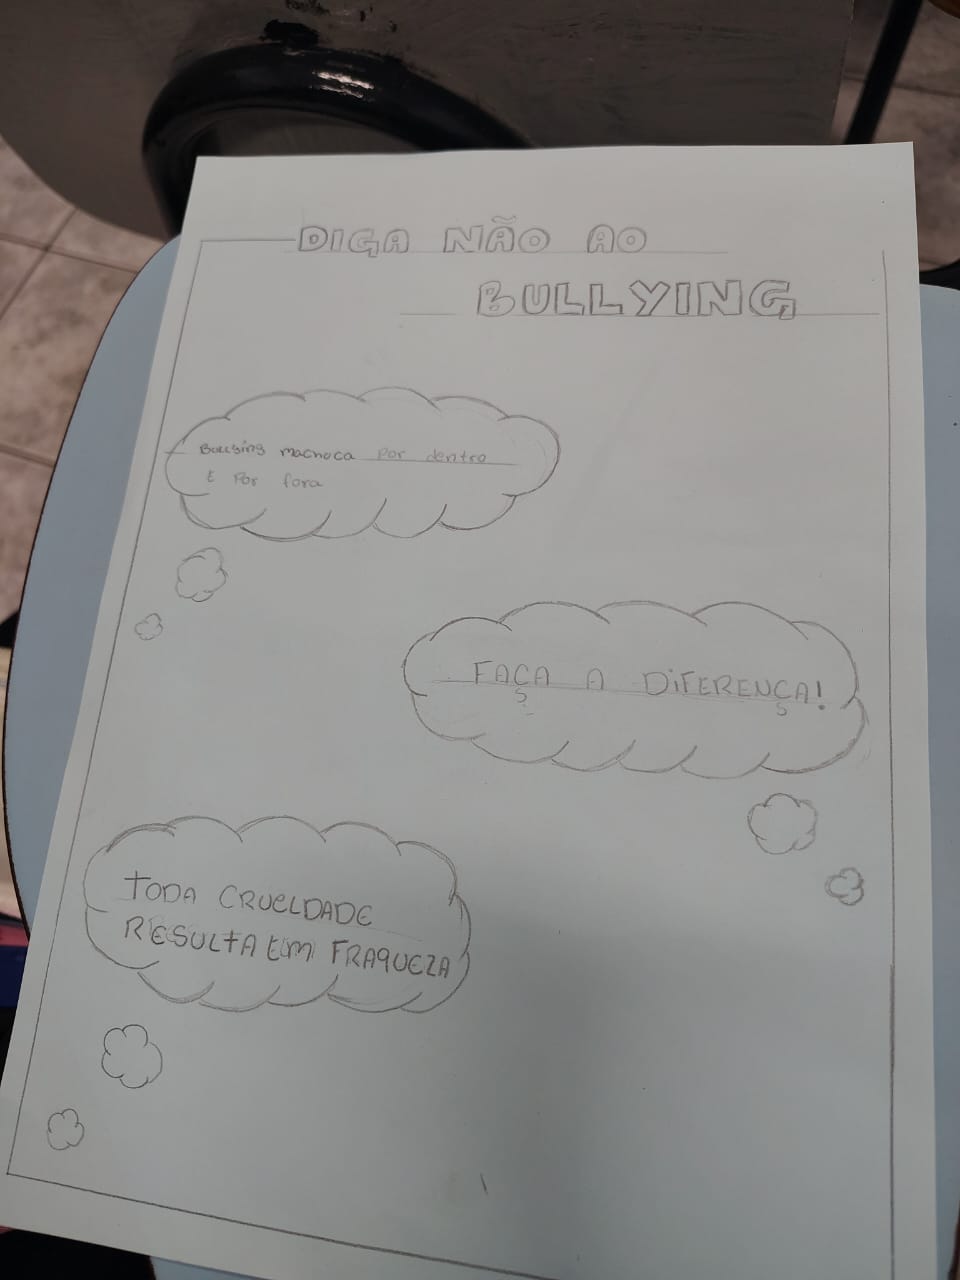 DIGA NÃO AO
BULLYING
Bullying machoca por dentro
E Por fora
FAÇA A DiFERENÇA!
TODA CRUELDADE
RESULTA EM FRAQUEZA